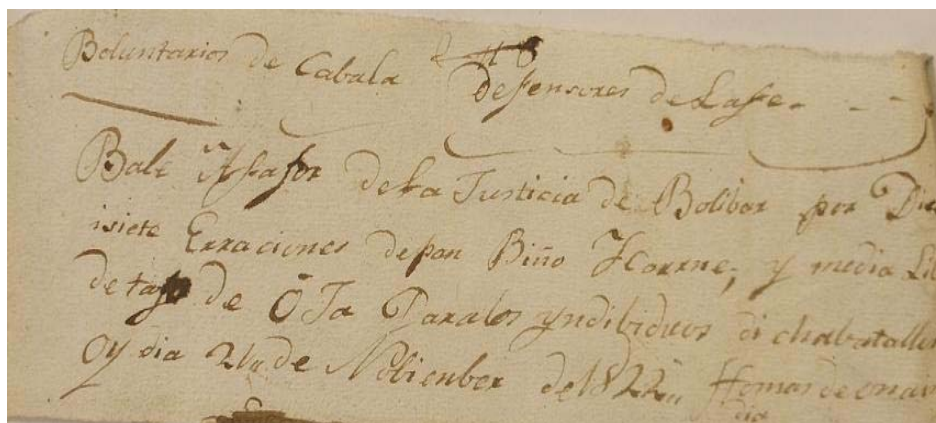 Boluntarios de Cabala Defensores de Lafe - - -
Bale Afabor de La Justicia de Bolibar por Diez
isiete Erraciones de pan Biño Ycarrne, y media Lib
de de Oja Paralos yndibiduos di
Oy dia 24 de Nobienber de 1822 Ttomas de onain
dia